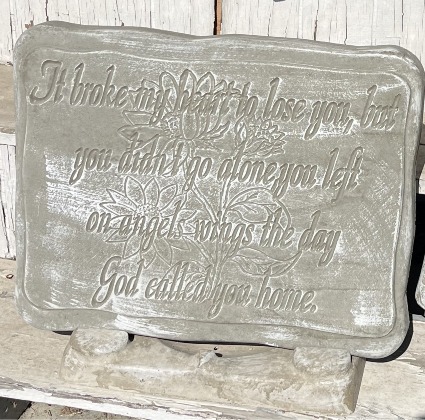 It broke my heart to lose you, but
you didn't go alone, you left
on angels wings the day
God called you home.